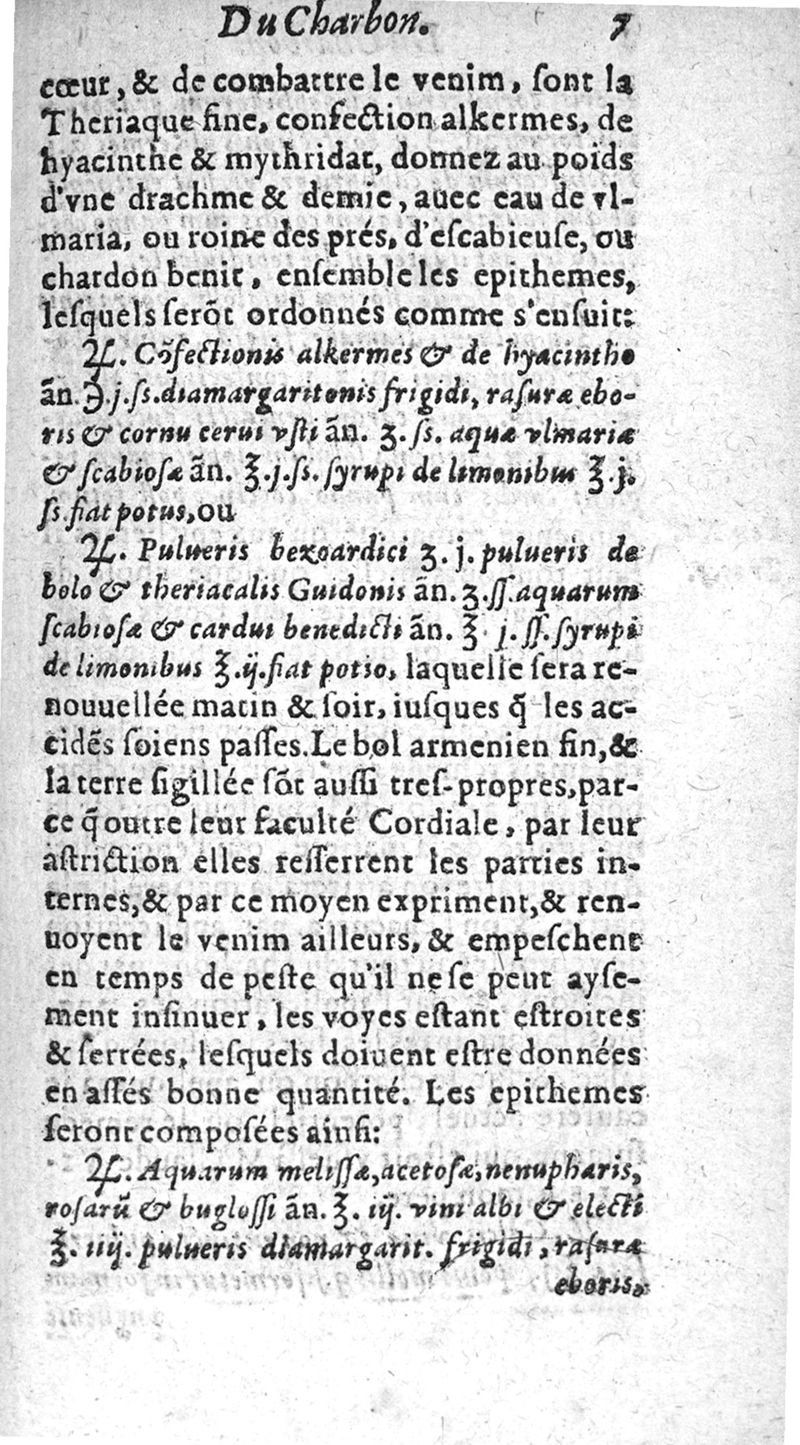 Du Charbon. 7
cœur, & de combattre le venim, ſont la
Theriaque fine, confection alkermes, de
hyacinthe & mythridat, donnez au poids
d'vne drachme & demie, auec eau de vl-
maria, ou roine des prés, d'eſcabieuſe, ou
chardon benit, enſemble les epithemes,
leſquels ſerõt ordonnés comme s'enſuit:
℞. Cõfectionis alkermes & de hyacintho
ãn. ʒ.j.ſs.diamargaritonis frigidi, raſuræ ebo-
ris & cornu cerui vſti ãn. ʒ.ſs. aquæ vlmariæ
& ſcabioſæ ãn. ℥.j.ſs. ſyrupi de limonibus ℥.j.
ſs.fiat potus,ou
℞. Pulueris bezoardici ʒ.j.pulueris de
bolo & theriacalis Guidonis ãn.ʒ.ſſ.aquarum
ſcabioſæ & cardui benedicti ãn. ℥ j.ſſ.ſyrupi
de limonibus ℥.ij.fiat potio, laquelle ſera re-
nouuellée matin & ſoir, iuſques q̃ les ac-
cidẽs ſoiens paſſes.Le bol armenien fin,&
la terre ſigillée ſõt auſſi treſ-propres,par-
ce q̃ outre leur faculté Cordiale, par leur
aſtriction elles reſſerrent les parties in-
ternes,& par ce moyen expriment,& ren-
uoyent le venim ailleurs, & empeſchent
en temps de peſte qu'il ne ſe peut ayſe-
ment inſinuer, les voyes eſtant eſtroites
& ſerrées, leſquels doiuent eſtre données
en aſſés bonne quantité. Les epithemes
ſeront compoſées ainſi:
℞. Aquarum meliſſæ,acetoſæ,nenupharis,
roſarũ & bugloſſi ãn.℥. iij. vini albi & electi
℥. iiij. pulueris diamargarit. frigidi, raſuræ
eboris,